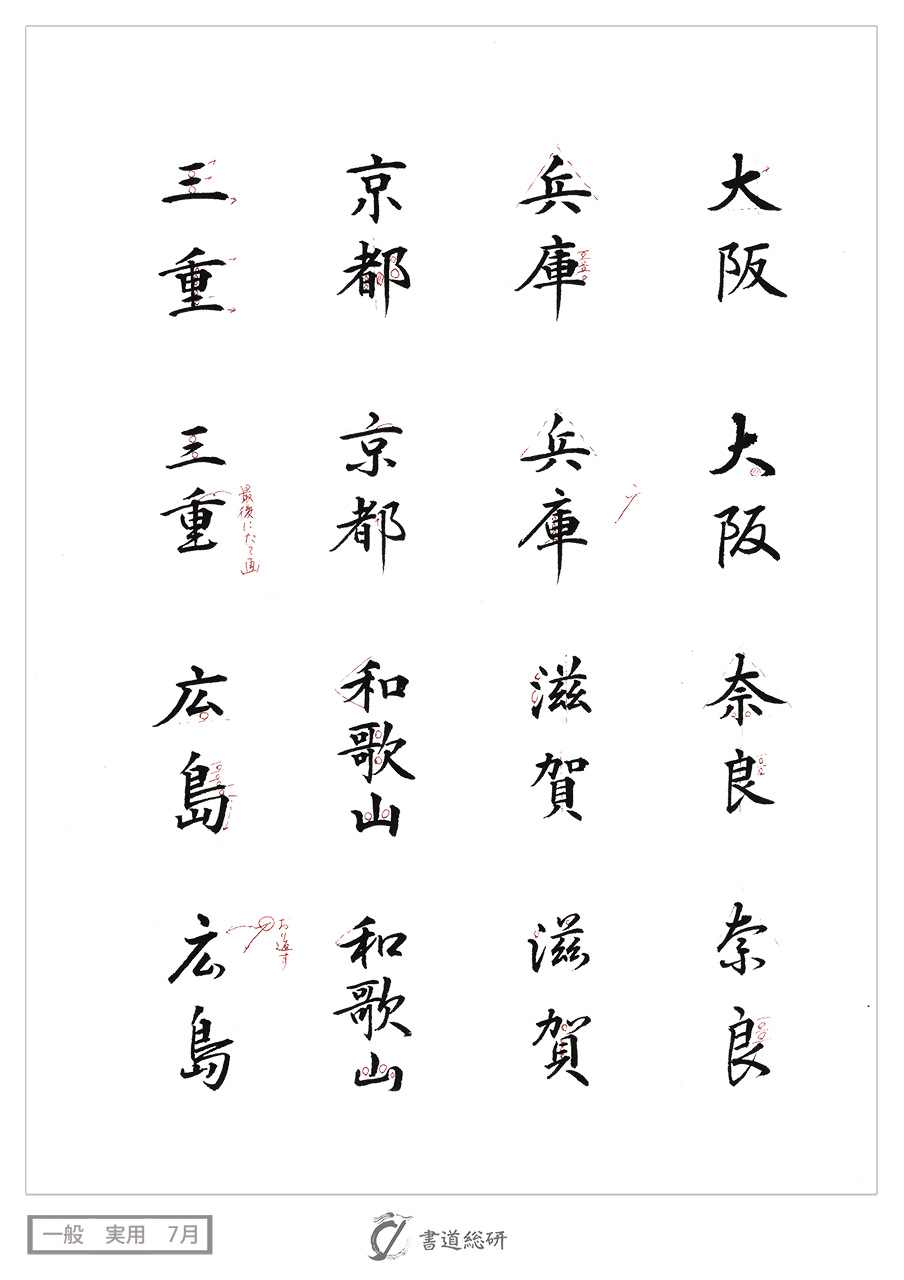 大阪
大阪
奈良
奈良
兵庫
兵庫
滋賀
滋賀
京都
京都
和歌山
和歌山
三重
三重
最後にたて画
広島
広島
おり返す
一般 実用 7月
書道総研